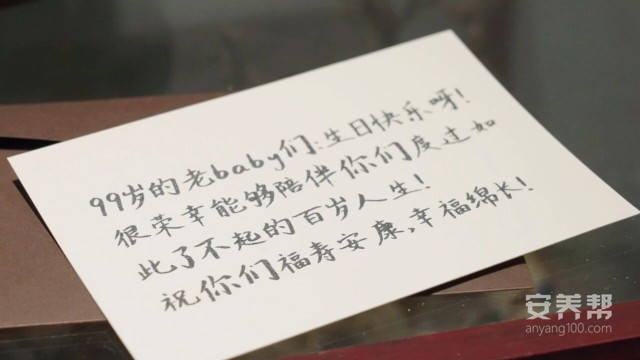 99岁的老baby们:生日快乐呀!
很荣幸能够陪伴你们度过如
此了不起的百岁人生!
祝你们福寿安康,幸福绵长!
安养帮
anyang100.com